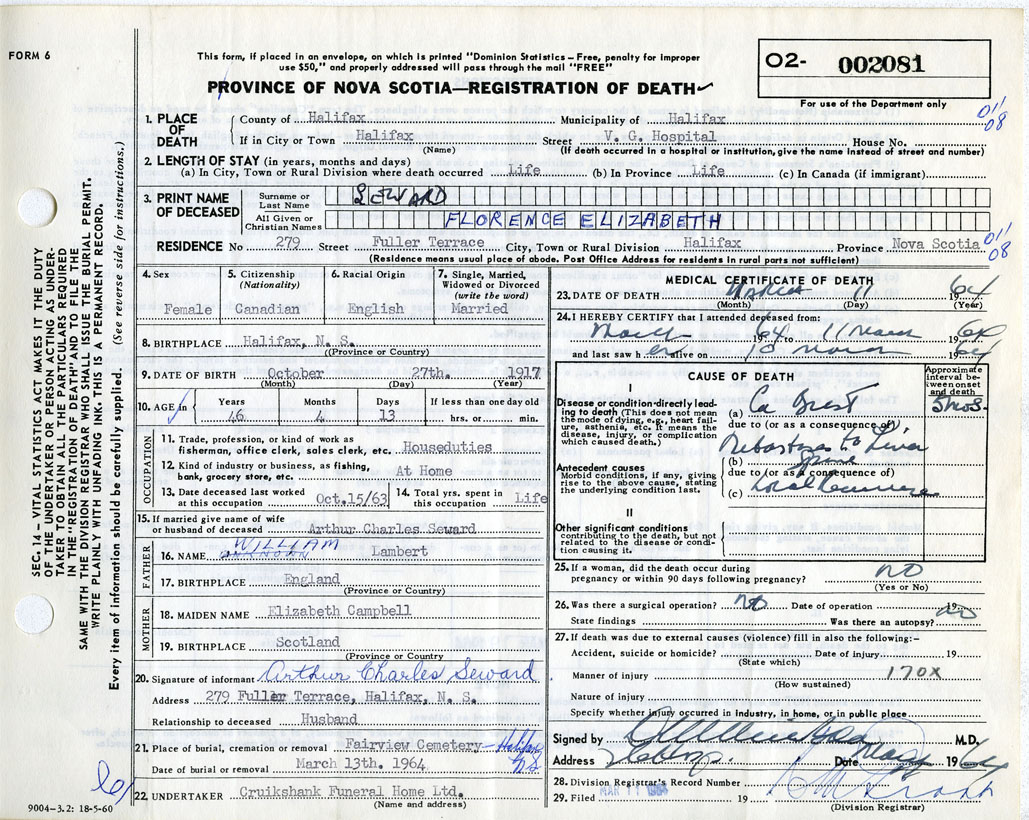 FORM 6
This form, if placed in an envelope, on which is printed "Dominion Statistics – Free, penalty for improper
use $50," and properly addressed will pass through the mail "FREE"
PROVINCE OF NOVA SCOTIA—REGISTRATION OF DEATH
O2- 002081
For use of the Department only
1. PLACE OF DEATH
County of Halifax Municipality of Halifax 011/08
If in City or Town Halifax Street V. G. Hospital House No.
(Name) (If death occurred in a hospital or institution, give the name instead of street and number)
2. LENGTH OF STAY (in years, months and days)
(a) In City, Town or Rural Division where death occurred Life (b) In Province Life (c) In Canada (if immigrant)
3. PRINT NAME OF DECEASED
Surname or Last Name SEWARD
All Given or Christian Names FLORENCE ELIZABETH
RESIDENCE No 279 Street Fuller Terrace City, Town or Rural Division Halifax Province Nova Scotia 011/08
(Residence means usual place of abode. Post Office Address for residents in rural parts not sufficient)
4. Sex
Female
5. Citizenship
(Nationality)
Canadian
6. Racial Origin
English
7. Single, Married,
Widowed or Divorced
(write the word)
Married
8. BIRTHPLACE Halifax, N. S.
((Province or Country)
9. DATE OF BIRTH October 27th. 1917
(Month) (Day) (Year)
10. AGE in Years Months Days If less than one day old
46 4 13 hrs. or min.
OCCUPATION
11. Trade, profession, or kind of work as
fisherman, office clerk, sales clerk, etc. Houseduties
12. Kind of industry or business, as fishing,
bank, grocery store, etc. At Home
13. Date deceased last worked
at this occupation Oct.15/63
14. Total yrs. spent in
this occupation Life
15. If married give name of wife
or husband of deceased Arthur Charles Seward
FATHER
16. NAME WILLIAM Lambert
17. BIRTHPLACE England
(Province or Country)
MOTHER
18. MAIDEN NAME Elizabeth Campbell
19. BIRTHPLACE Scotland
(Province or Country)
20. Signature of informant Arthur Charles Seward
Address 279 Fuller Terrace, Halifax, N. S.
Relationship to deceased Husband
21. Place of burial, cremation or removal Fairview Cemetery – Halifax
Date of burial or removal March 13th. 1964
22. UNDERTAKER Cruikshank Funeral Home Ltd.
(Name and address)
9004–3.2: 18-5-60
MEDICAL CERTIFICATE OF DEATH
23. DATE OF DEATH March 11 1964
(Month) (Day) (Year)
24. I HEREBY CERTIFY that I attended deceased from:
March 1964 to 11 March 1964
and last saw her alive on 10 March 1964
CAUSE OF DEATH
Approximate
interval be-
tween onset
and death
I
Disease or condition directly lead-
ing to death (This does not mean
the mode of dying, e.g., heart fail-
ure, asthenia, etc. It means the
disease, injury, or complication
which caused death.)
(a) Ca Brest 5 mos.
due to (or as a consequence of)
to Liver
Antecedent causes
Morbid conditions, if any, giving
rise to the above cause, stating
the underlying condition last.
(b) Spine
due to (or as a consequence of)
(c) Local
II
Other significant conditions
contributing to the death, but not
related to the disease or condi-
tion causing it.
25. If a woman, did the death occur during
pregnancy or within 90 days following pregnancy? NO
(Yes or No)
26. Was there a surgical operation? NO Date of operation 19
State findings Was there an autopsy? NO
27. If death was due to external causes (violence) fill in also the following:–
Accident, suicide or homicide? Date of injury 19
(State which)
Manner of injury 170X
(How sustained)
Nature of injury
Specify whether injury occurred in industry, in home, or in public place
Signed by M.D.
Address Date 1964
28. Division Registrar's Record Number
29. Filed MAR 11 1964 19
(Division Registrar)
SEC. 14 – VITAL STATISTICS ACT MAKES IT THE DUTY
OF THE UNDERTAKER OR PERSON ACTING AS UNDER-
TAKER TO OBTAIN ALL THE PARTICULARS REQUIRED
IN THE "REGISTRATION OF DEATH" AND TO FILE THE
SAME WITH THE DIVISION REGISTRAR WHO SHALL ISSUE THE BURIAL PERMIT.
WRITE PLAINLY WITH UNFADING INK. THIS IS A PERMANENT RECORD.
Every item of information should be carefully supplied. (See reverse side for instructions.)